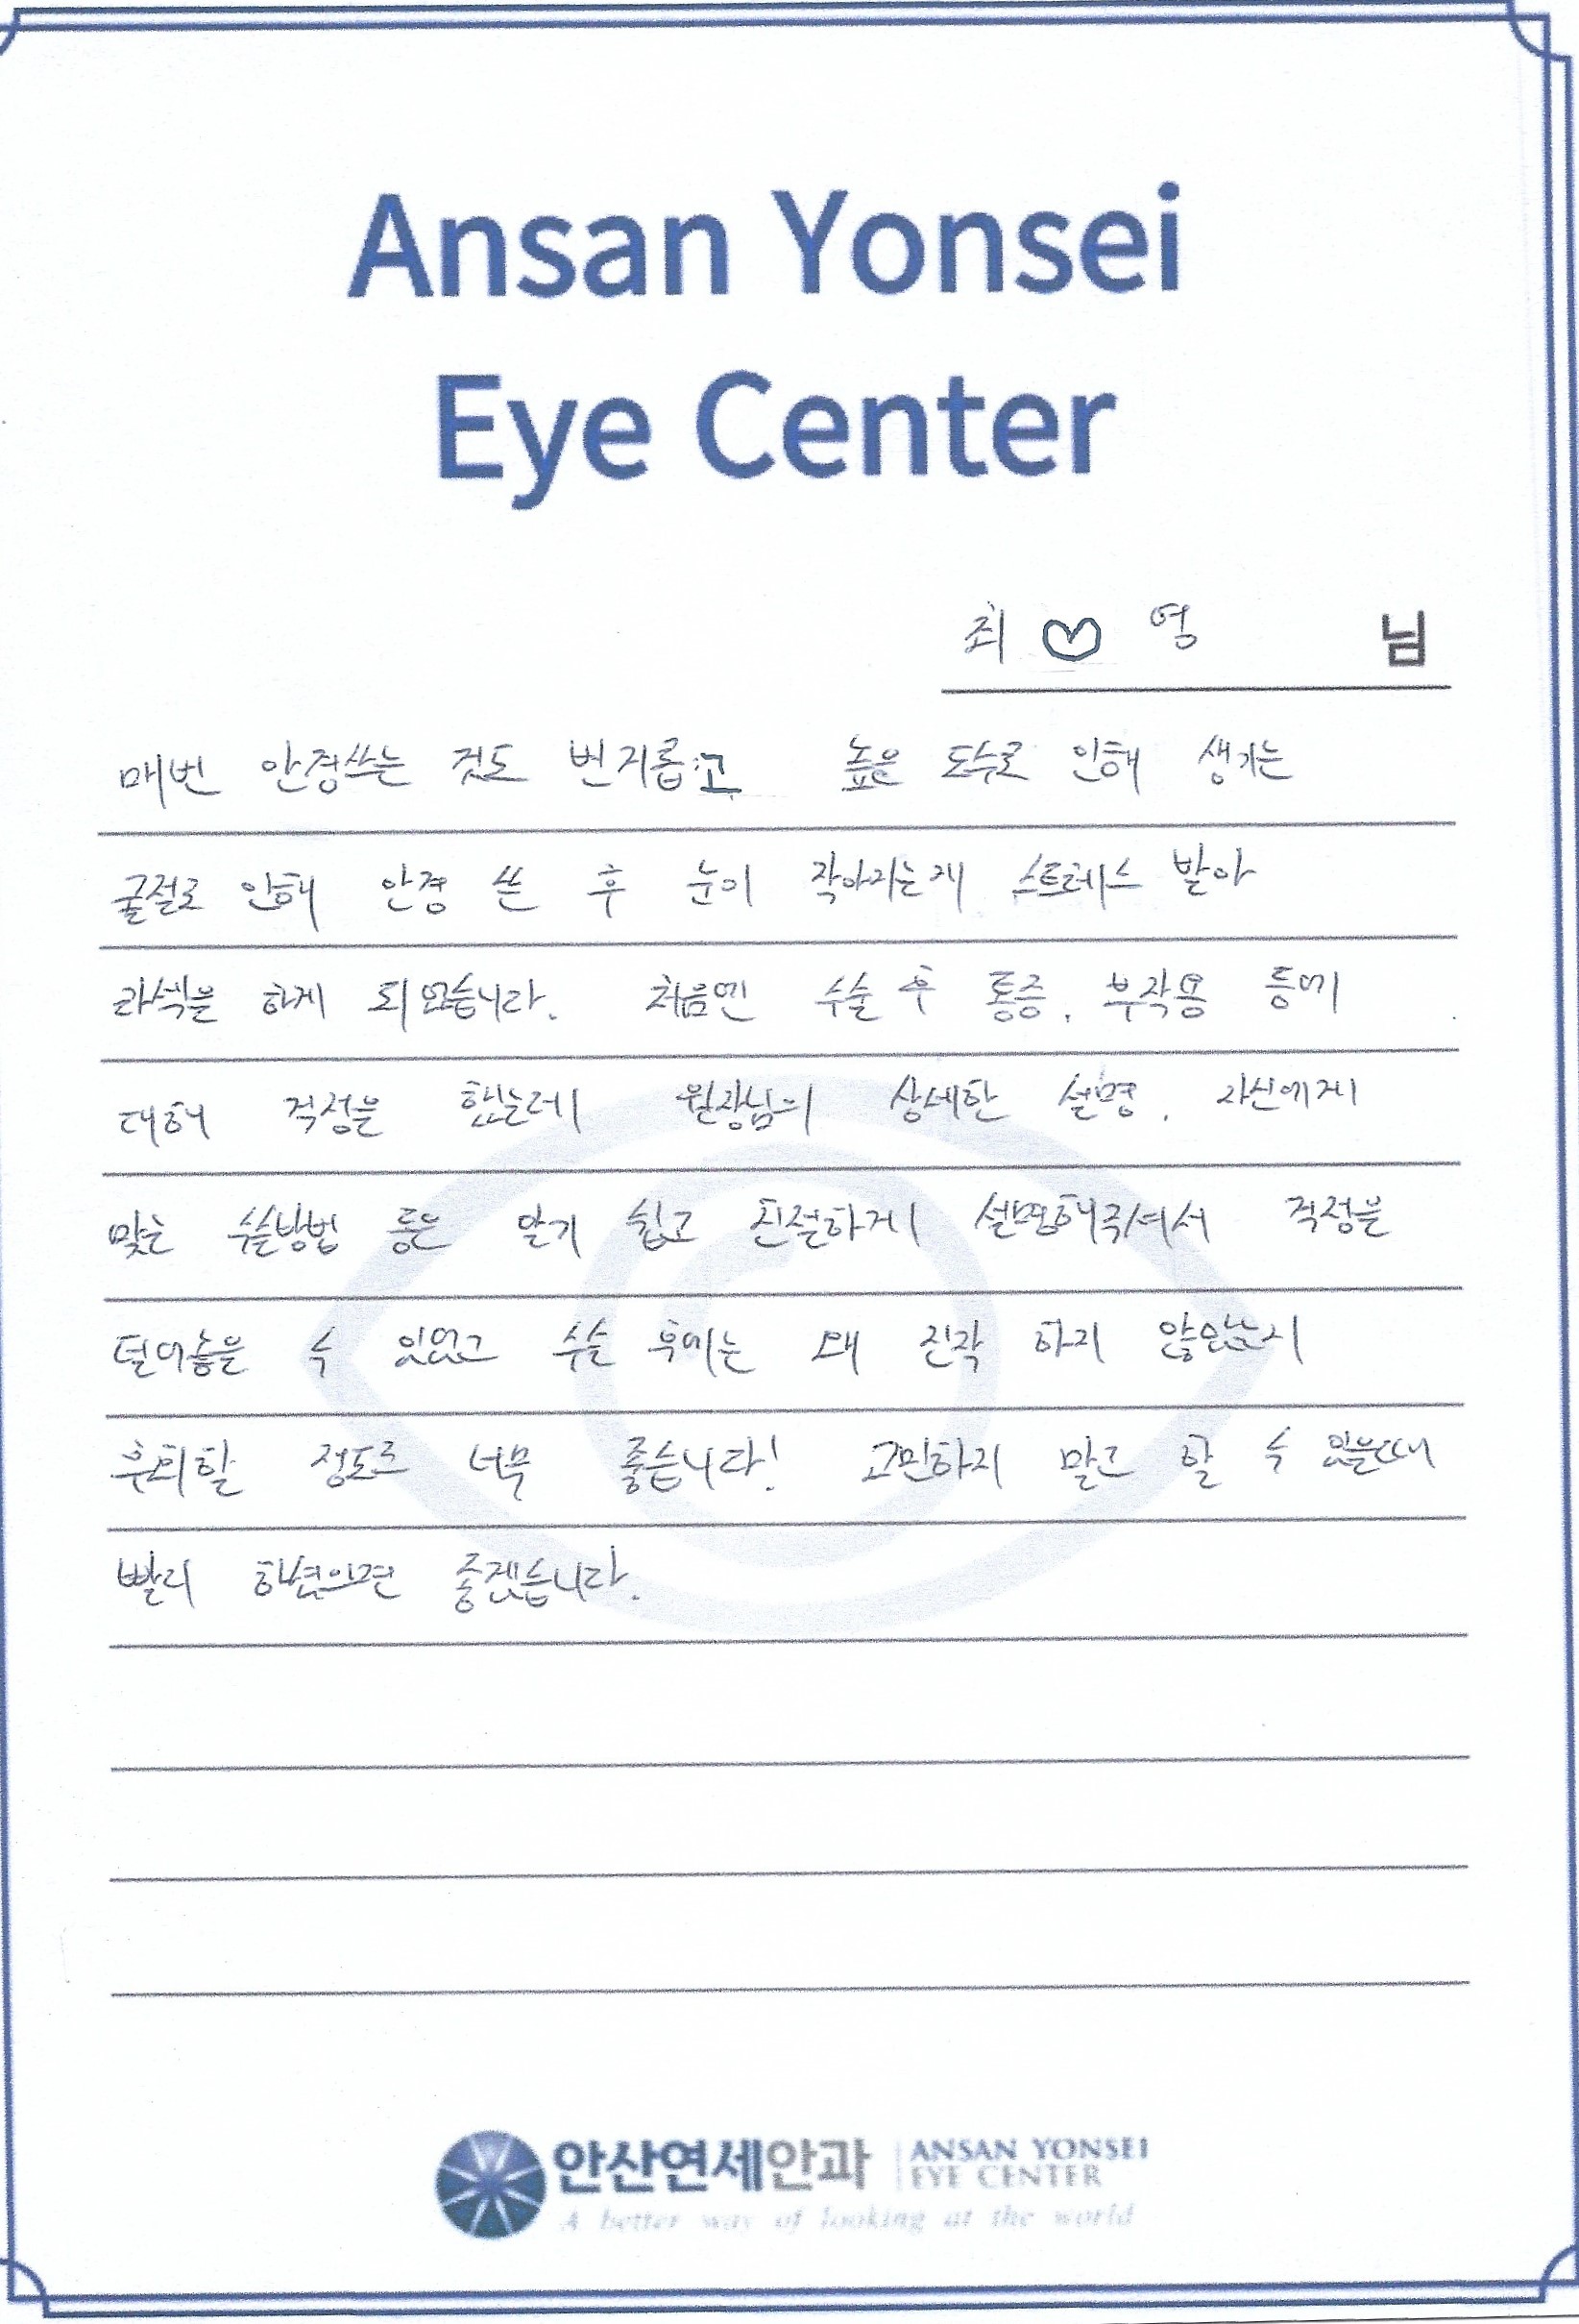 Ansan Yonsei
Eye Center
최 ♡ 영 님
매번 안경쓰는 것도 번거롭고 높은 도수로 인해 생기는
굴절로 인해 안경 쓴 후 눈이 작아지는게 스트레스 받아
라섹을 하게 되었습니다. 처음엔 수술 후 통증, 부작용 등에
대해 걱정을 했는데 원장님의 상세한 설명, 자신에게
맞는 수술방법 등은 알기 쉽고 친절하게 설명해주셔서 걱정을
덜어놓을 수 있었고 수술 후에는 왜 진작 하지 않았는지
후회할 정도로 너무 좋습니다! 고민하지 말고 할 수 있을때
빨리 하셨으면 좋겠습니다.
안산연세안과 ANSAN YONSEI
EYE CENTER
A better way of looking at the world